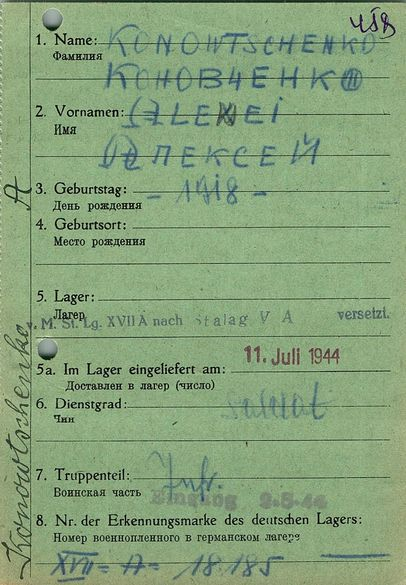 458
1. Name: KONOWTSCHENKO
Фамилия
КОНОВЧЕНКО
2. Vornamen: ALEXEI
Имя
АЛЕКСЕЙ
3. Geburtstag: - 1918 -
День рождения
4. Geburtsort:
Место рождения
5. Lager:
Лагер
v. M. St. Lg. XVII A nach Stalag V A versetzt.
5a. Im Lager eingeliefert am: 11. Juli 1944
Доставлен в лагер (число)
6. Dienstgrad: Soldat
Чин
7. Truppenteil: Inf.
Воинская часть
Eingang 2.8.44
8. Nr. der Erkennungsmarke des deutschen Lagers:
Номер военнопленного в германском лагере
XVII = A = 18185
Konowtschenko A